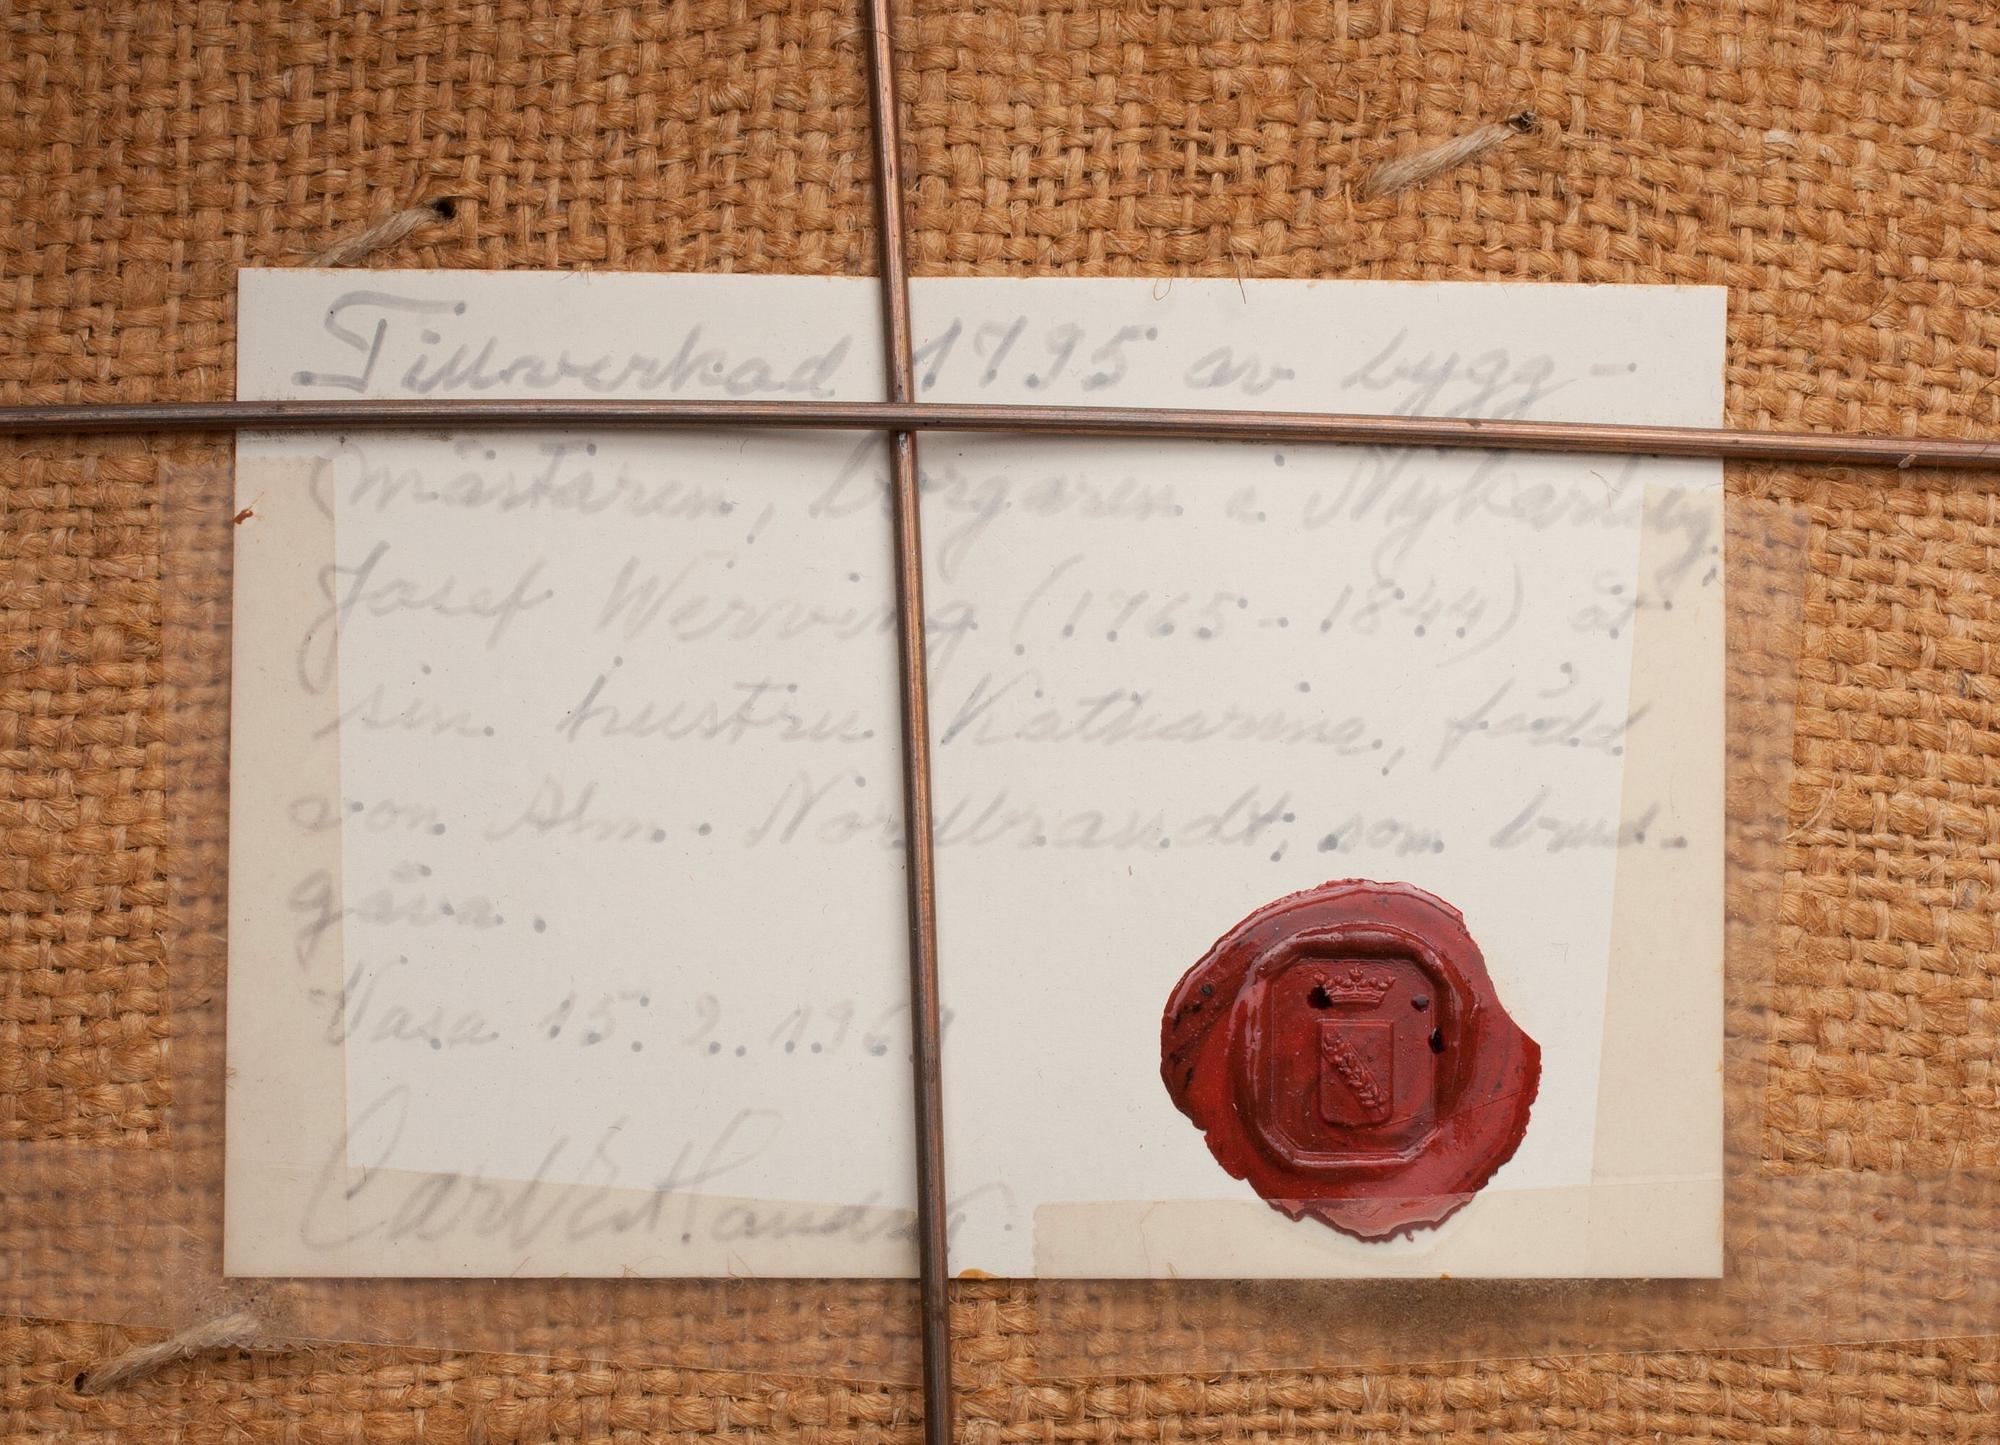 Tillverkad 1795 av bygg-
mästaren, borgaren i Nykarleby,
Josef Werving (1765-1844) åt
sin hustru Katharina, född
von Ahn-Nordbrandt, som brud-
gåva.
Vasa 15. 2. 1969
Carl